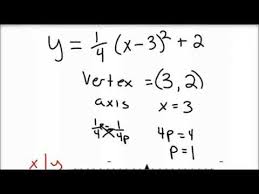 y = 1/4 (x-3)² + 2
vertex = (3, 2)
axis x = 3
1/4 = 1/4p 4p = 4
p = 1
x | y